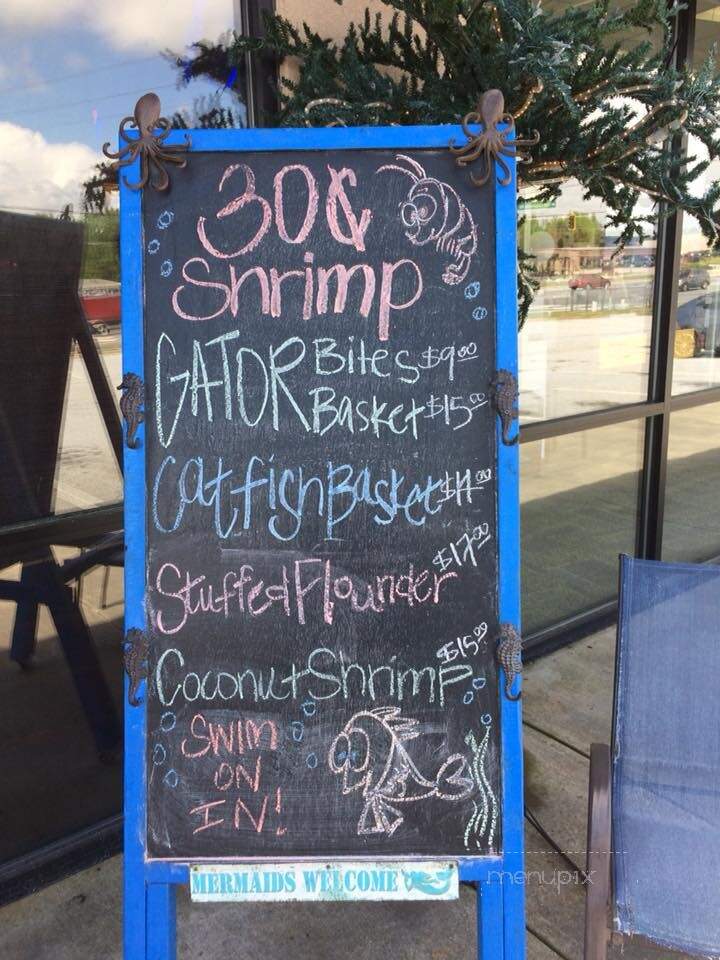 30¢
Shrimp
GATOR Bites $9.00
Basket $15.00
Catfish Basket
Stuffed Flounder $17.00
Coconut Shrimp $15.00
SWIM
ON
IN!
MERMAIDS WELCOME
menupix